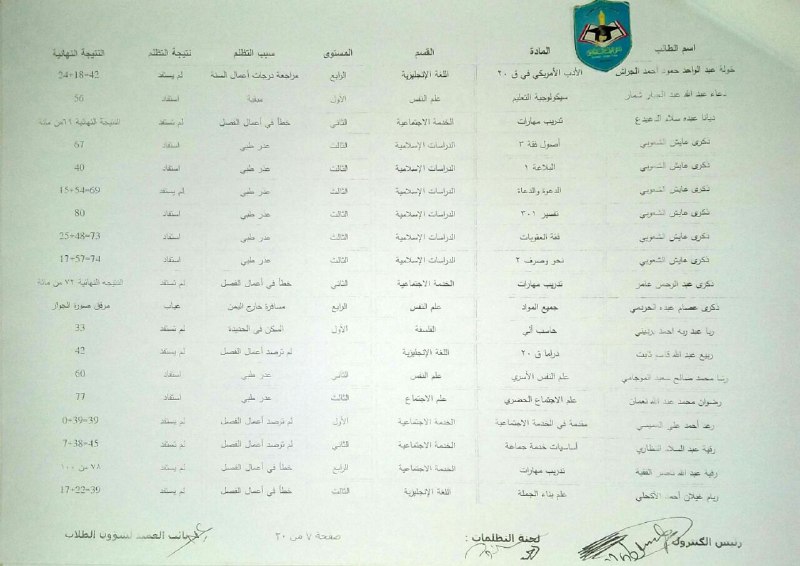 اسم الطالب المادة القسم المستوى سبب التظلم نتيجة التظلم النتيجة النهائية
خولة عبد الواحد حمود أحمد الجراش الأدب الأمريكي في ق ٢٠ اللغة الإنجليزية الرابع مراجعة درجات أعمال السنة لم يستفد 24+18=42
دعاء عبد الله عبد الجبار شمار سيكولوجية التعليم علم النفس الأول استفاد 50
ديانا عبده سلام تدريب مهارات الخدمة الاجتماعية الثاني خطأ في أعمال الفصل لم تستفد النتيجة النهائية من مائة
ذكرى عايش الشعوبي أصول فقة ٣ الدراسات الإسلامية الثالث عذر طبي استفاد 67
ذكرى عايش الشعوبي البلاغة ١ الدراسات الإسلامية الثالث عذر طبي استفاد 40
ذكرى عايش الشعوبي الدعوة والدعاة الدراسات الإسلامية الثالث عذر طبي لم يستفد 15+54=69
ذكرى عايش الشعوبي تفسير ٣٠١ الدراسات الإسلامية الثالث عذر طبي استفاد 80
ذكرى عايش الشعوبي فقة العقوبات الدراسات الإسلامية الثالث عذر طبي استفاد 25+48=73
ذكرى عايش الشعوبي نحو وصرف ٢ الدراسات الإسلامية الثالث عذر طبي استفاد 17+57=74
ذكرى عبد الرحمن عامر تدريب مهارات الخدمة الاجتماعية الثاني خطأ في أعمال الفصل لم تستفد النتيجة النهائية ٧٦ من مائة
ذكرى عصام عبده جميع المواد علم النفس الرابع مسافرة خارج اليمن غياب مرفق صورة الجواز
ربا عبد ربه احمد حاسب آلي الفلسفة الأول السكن في الحديدة لم تستفد 33
ربيع عبد الله قايد ثابت دراما ق ٢٠ اللغة الإنجليزية لم ترصد أعمال الفصل لم يستفد 42
رسا محمد صالح سعيد علم النفس الأسري علم النفس الثاني عذر طبي استفاد 60
رضوان محمد عبد الله نعمان علم الاجتماع الحضري علم الاجتماع الثالث عذر طبي استفاد 77
رغد أحمد علي مقدمة في الخدمة الاجتماعية الخدمة الاجتماعية الأول لم ترصد أعمال الفصل لم يستفد 0+39=39
رقية عبد السلام النظاري أساسيات خدمة جماعة الخدمة الاجتماعية الثاني لم ترصد أعمال الفصل لم تستفد 7+38=45
رقية عبد الله ناصر الفقية تدريب مهارات الخدمة الاجتماعية الرابع خطأ في أعمال الفصل لم يستفد ٧٨ من ١٠٠
ريام غيلان أحمد علم بناء الجملة اللغة الإنجليزية الثالث خطأ في أعمال الفصل لم يستفد 17+22=39
رئيس الكنترول لجنة التظلمات : صفحة ٧ من ٢٠ نائب العميد لشؤون الطلاب